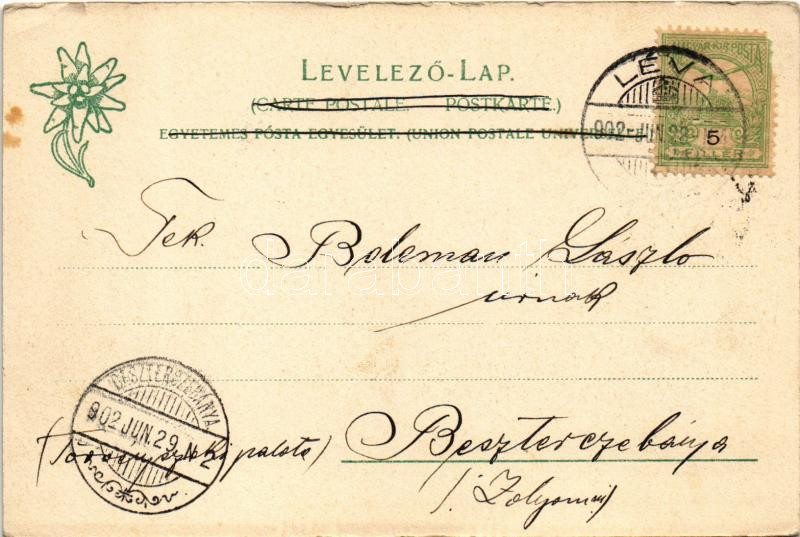 LEVELEZŐ-LAP.
(CARTE POSTALE. POSTKARTE.)
EGYETEMES PÓSTA EGYESÜLET. (UNION POSTALE UNIVER
MAGYAR KIR. POSTA
5
FILLÉR
LÉVA
902 JUN. 28
Tek. Boleman László
urnak
darabanth
BESZTERCZEBÁNYA
902 JUN. 29. N 2
(Törvényszéki palota) Beszterczebánya
(Zolyom